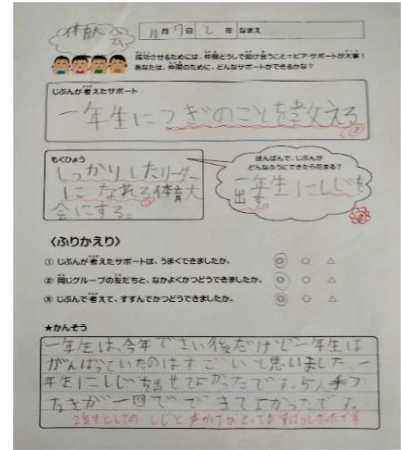 体育大会
10月7日(
年なまえ
成功させるためには、仲間どうしで助け合うこと=ピア・サポートが大事!
あなたは、仲間のために、どんなサポートができるかな?
じぶんが考えたサポート
一年生につぎのことを教える
もくひょう
しっかりしたリーダー
になれる体育大
会にする。
ほんばんで、じぶんが
どんなふうにできたら花まる?
一年生にしじを
出す。
〈ふりかえり〉
① じぶんが考えたサポートは、うまくできましたか。 ◎ ○ △
② 同じグループの友だちと、なかよくかつどうできましたか。 ◎ ○ △
③ じぶんで考えて、すすんでかつどうできましたか。 ◎ ○ △
★かんそう
一年生は、今年でさい後だけど一年生は
がんばっていたのはすごいと思いました。一
年生にしじを出せてよかったです。5人手つ
なぎが一回でできてよかったです。
2年生としての しじと声かけが とってもすばらしかったです